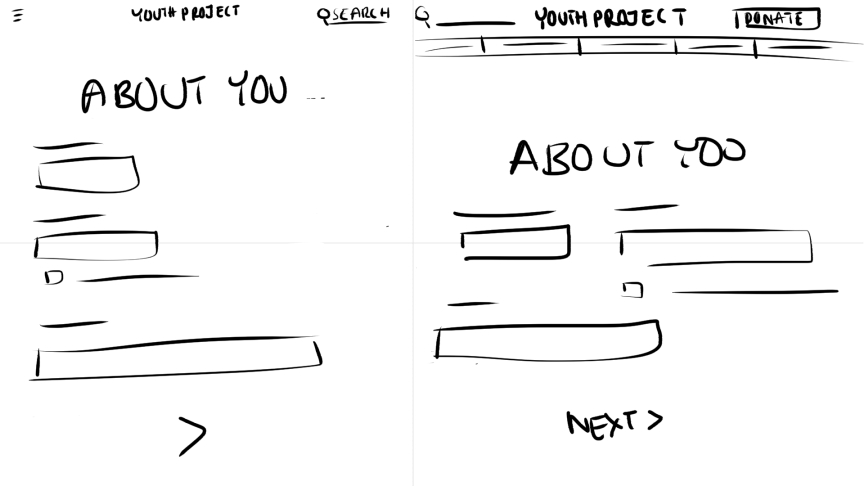 YOUTH PROJECT
SEARCH
ABOUT YOU ...
>
YOUTH PROJECT
DONATE
ABOUT YOU
NEXT >